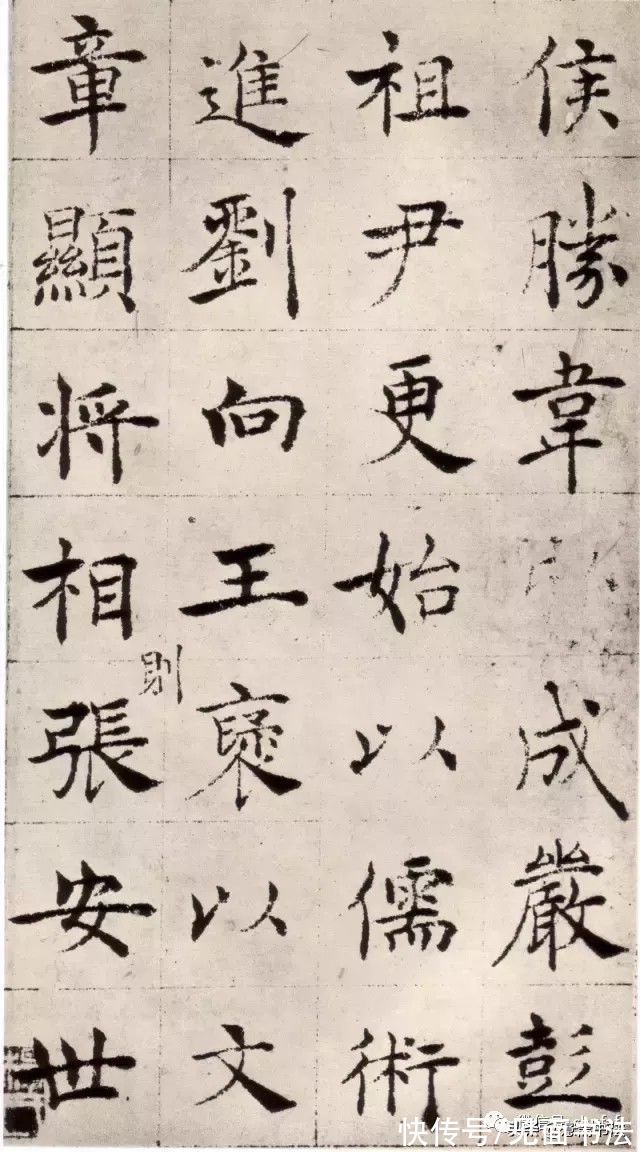 侯勝韋成嚴彭
祖尹更始以儒術
進劉向王褒以文
則
章顯將相張安世
快传号/见面书法